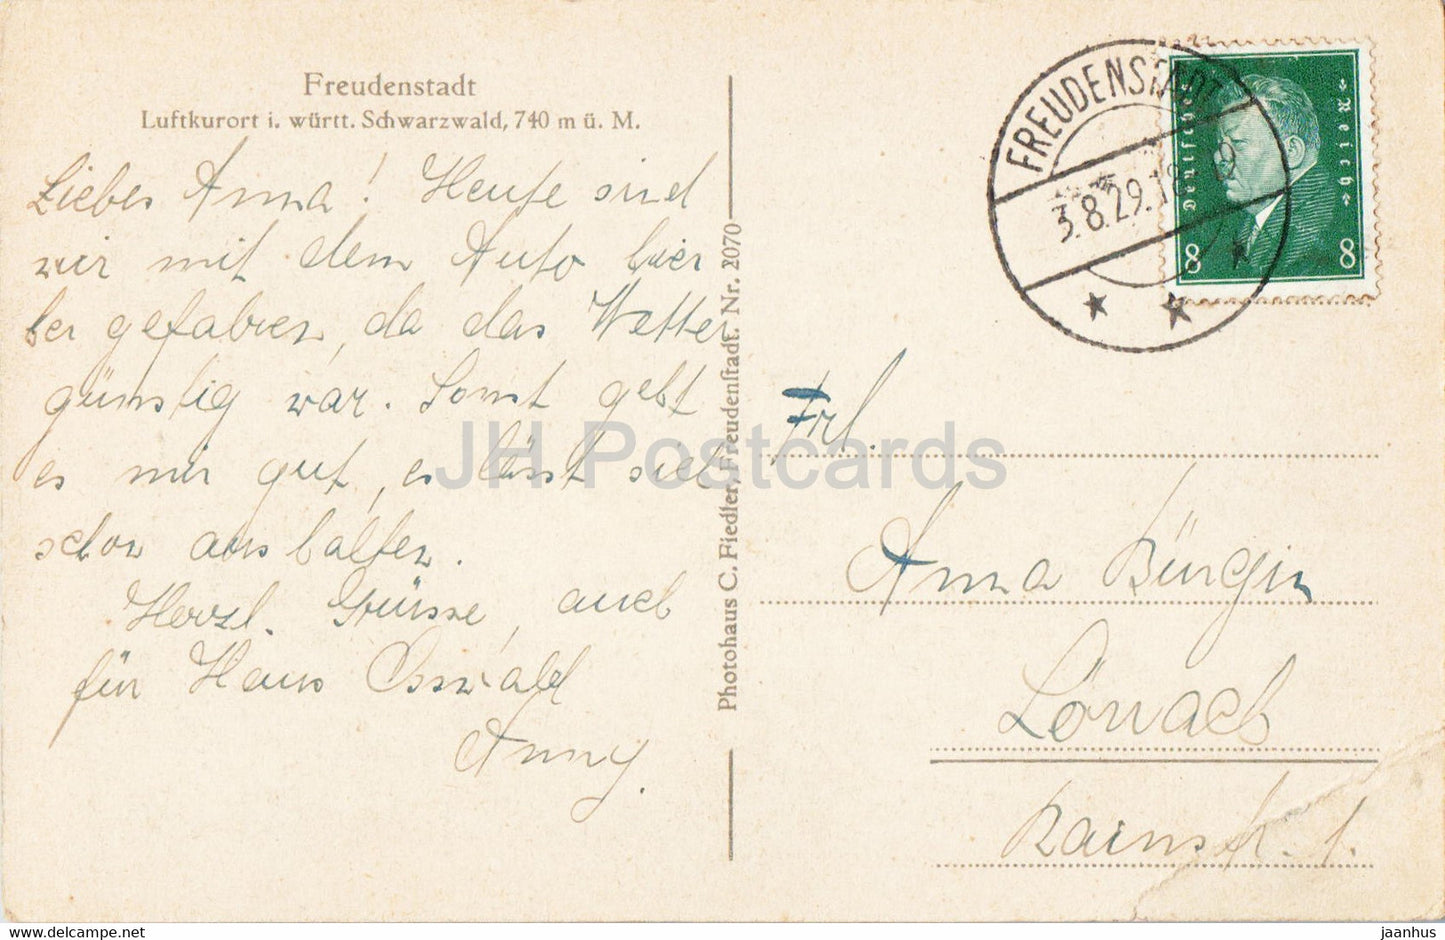 Freudenstadt
Luftkurort i. württ. Schwarzwald, 740 m ü. M.
Liebes Anna! Heute sind
wir mit dem Auto hier
her gefahren, da das Wetter
günstig war. Sonst geht
es mir gut, es lässt sich
schon aushalten.
Herzl. Grüsse, auch
für Hans Oswald
Anny.
Photohaus C. Fiedler, Freudenstadt. Nr. 2070
FREUDENSTADT
3.8.29.18
Deutsches Reich
8 8
Frl.
Anna Bürgin
Lörrach
Rainstr. 1.
JH Postcards
delcampe.net
jaanhus